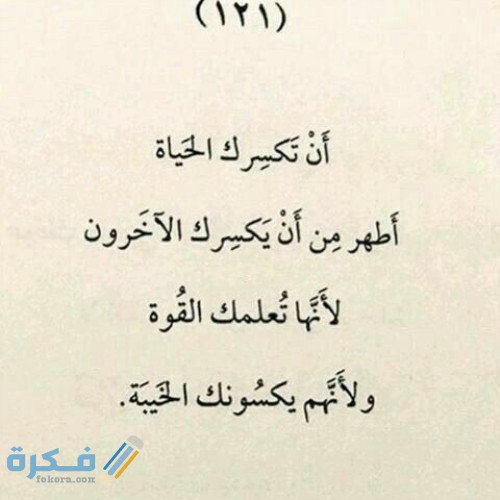 (١٢١)
أَنْ تَكسِرك الحَياة
أَطهر مِن أَنْ يَكسِرك الآخَرون
لأَنَّها تُعلمك القُوة
ولأَنَّهم يكسُونك الخَيبَة.
فكرة
fekera.com